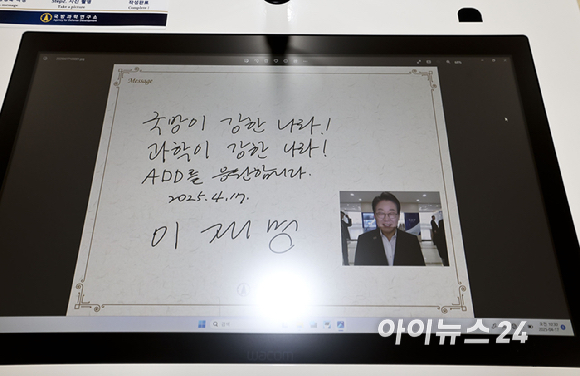 Step2. 사진 촬영
Take a picture
작성완료
Complete !
국방과학연구소
Message
국방이 강한 나라!
과학이 강한 나라!
ADD를 응원합니다.
2025.4.17.
이 재 명
아이뉴스24
wacom